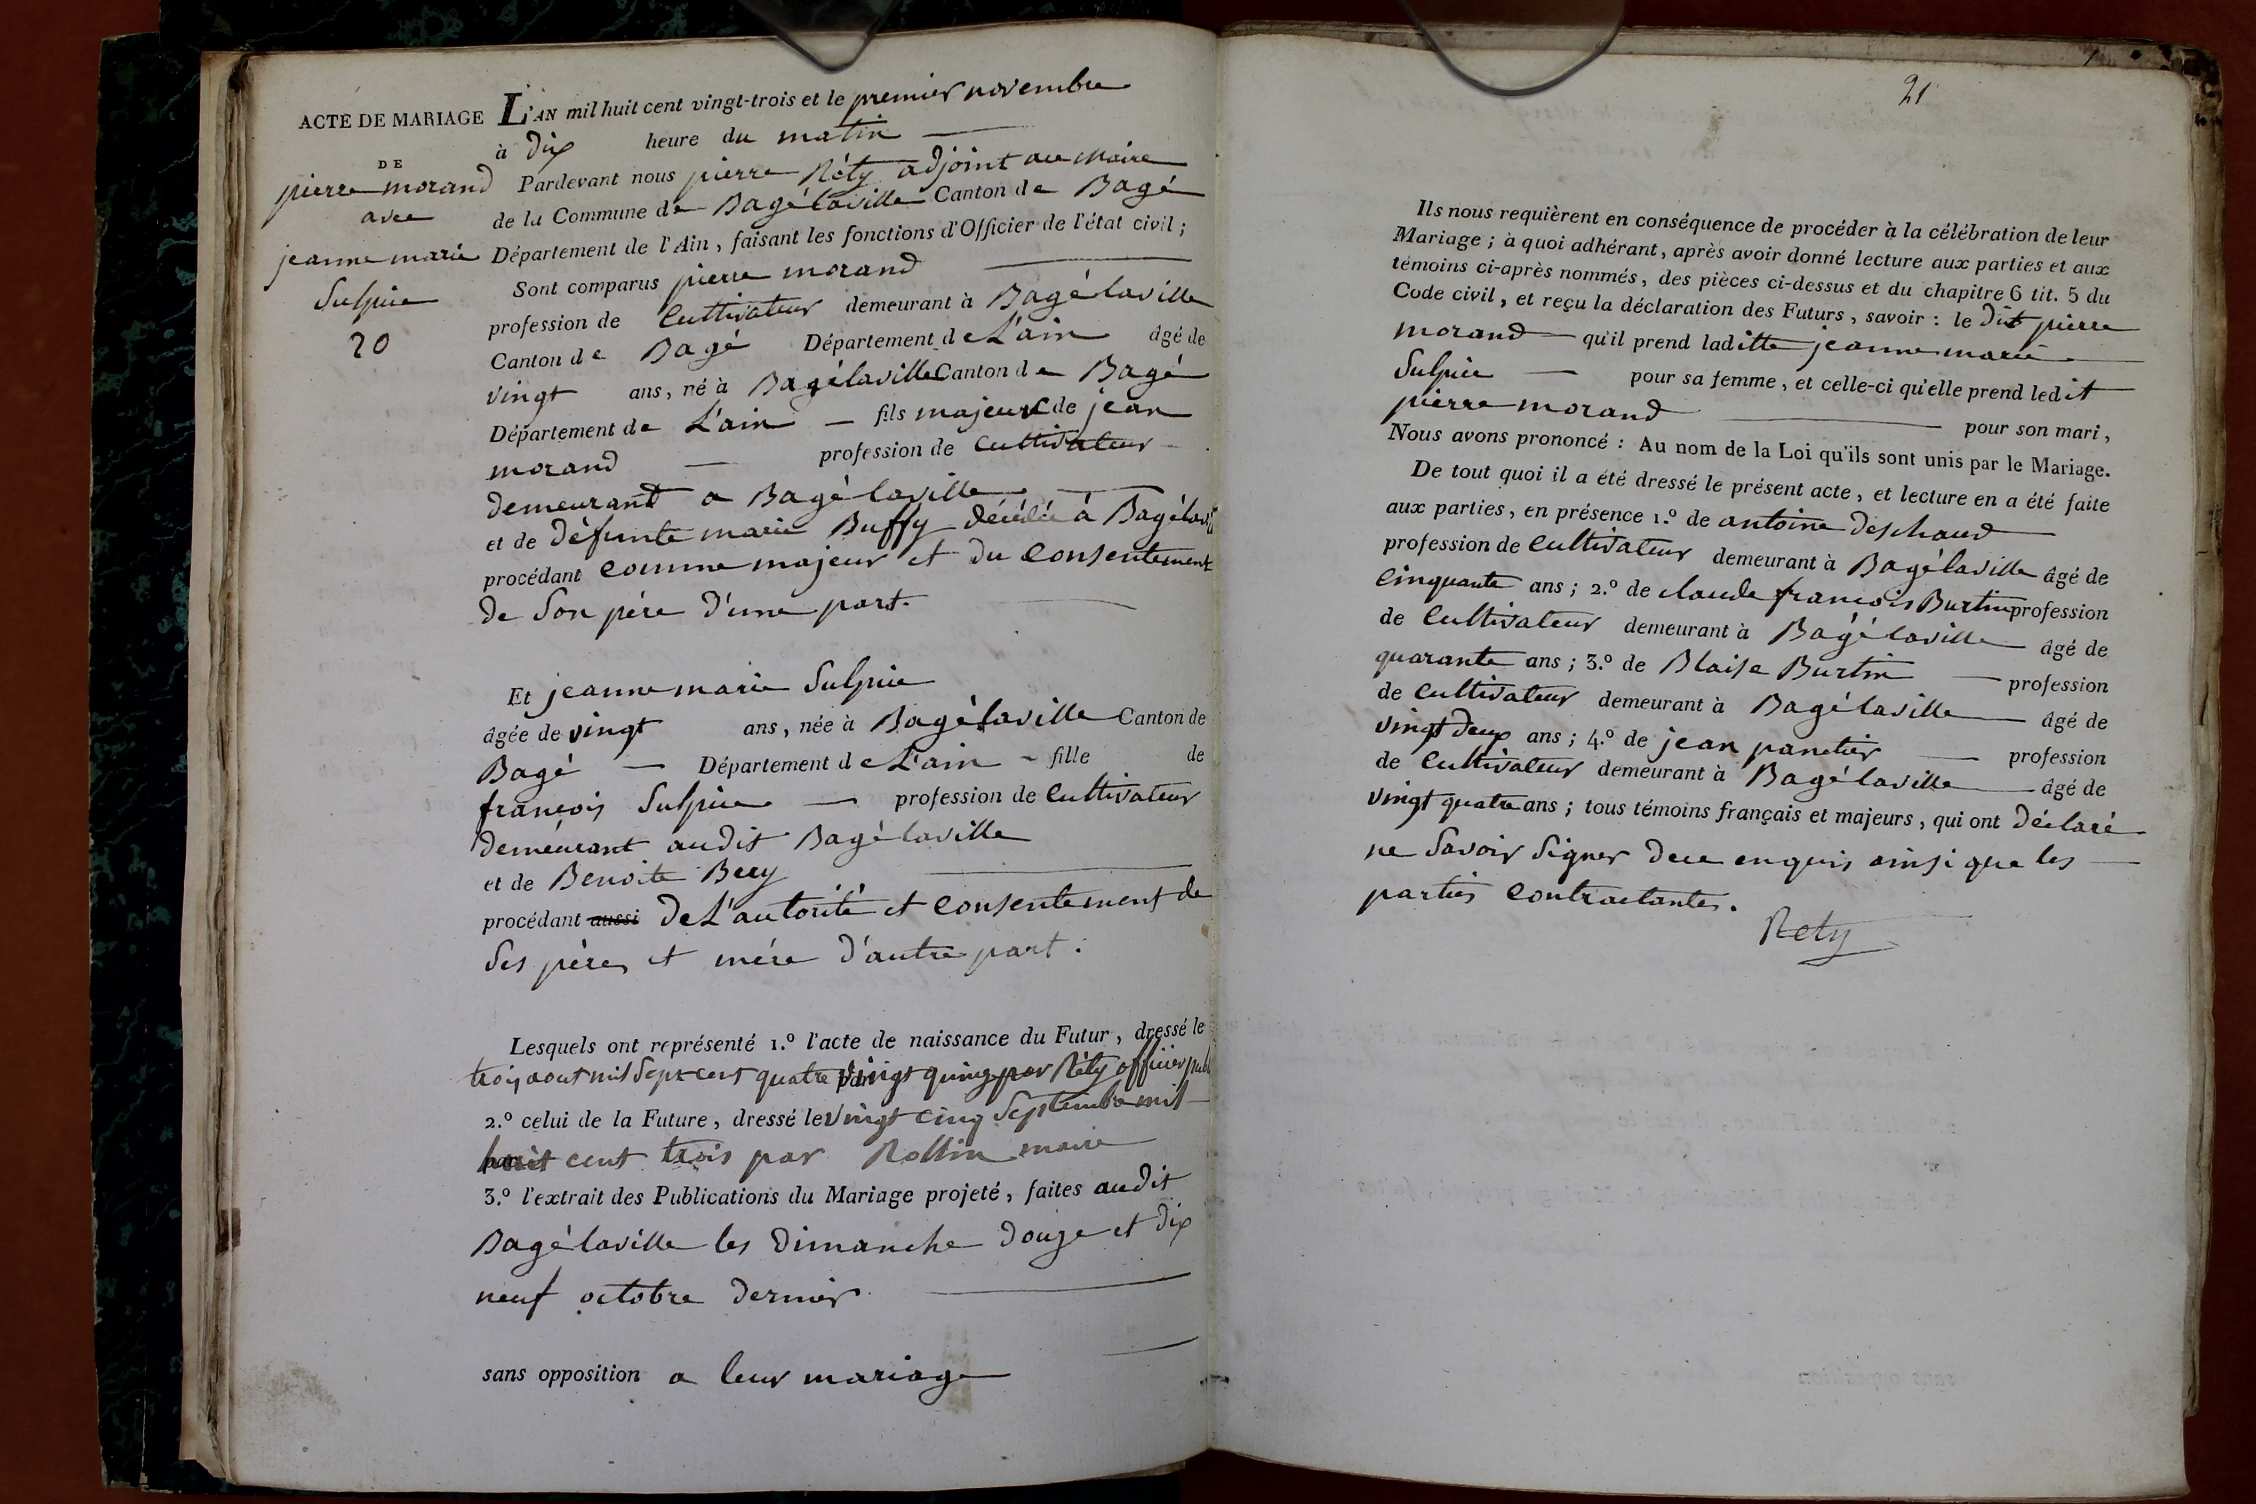 ACTE DE MARIAGE
DE
pierre morand
avec
jeanne marie
Sulpice
20
L'AN mil huit cent vingt-trois et le premier novembre
à dix heure du matin
Pardevant nous pierre Réty adjoint au maire
de la Commune de Bagélaville Canton de Bagé
Département de l'Ain, faisant les fonctions d'Officier de l'état civil;
Sont comparus pierre morand
profession de Cultivateur demeurant à Bagélaville
Canton de Bagé Département de L'ain âgé de
vingt ans, né à Bagélaville Canton de Bagé
Département de L'ain fils majeur de jean
morand profession de cultivateur
demeurant a Bagélaville
et de défunte marie Buffy décédée à Bagélaville
procédant comme majeur et du consentement
de Son pére d'une part.
Et jeanne marie Sulpice
âgée de vingt ans, née à Bagélaville Canton de
Bagé Département de L'ain fille de
françois Sulpice profession de Cultivateur
demeurant audit Bagélaville
et de Benoite
procédant aussi de L'autorité et consentement de
Ses père et mére d'autre part.
Lesquels ont représenté 1.º l'acte de naissance du Futur, dressé le
trois aout mil Sept cent quatre vingt quinze par Réty officier
2.º celui de la Future, dressé le vingt cinq Septembre mil
huit cent trois par Rollin maire
3.º l'extrait des Publications du Mariage projeté, faites audit
Bagélaville les dimanche douze et dix
neuf octobre dernier
sans opposition a leur mariage
21
Ils nous requièrent en conséquence de procéder à la célébration de leur
Mariage; à quoi adhérant, après avoir donné lecture aux parties et aux
témoins ci-après nommés, des pièces ci-dessus et du chapitre 6 tit. 5 du
Code civil, et reçu la déclaration des Futurs, savoir: le dit pierre
morand qu'il prend laditte jeanne marie
Sulpice pour sa femme, et celle-ci qu'elle prend ledit
pierre morand pour son mari,
Nous avons prononcé: Au nom de la Loi qu'ils sont unis par le Mariage.
De tout quoi il a été dressé le présent acte, et lecture en a été faite
aux parties, en présence 1.º de antoine deschaud
profession de Cultivateur demeurant à Bagélaville âgé de
Cinquante ans; 2.º de claude françois Burtin profession
de Cultivateur demeurant à Bagélaville âgé de
quarante ans; 3.º de Blaise Burtin profession
de Cultivateur demeurant à Bagélaville âgé de
vingt deux ans; 4.º de jean panetier profession
de Cultivateur demeurant à Bagélaville âgé de
vingt quatre ans; tous témoins français et majeurs, qui ont déclaré
ne Savoir Signer de ce enquis ainsi que les
parties contractantes.
Rety